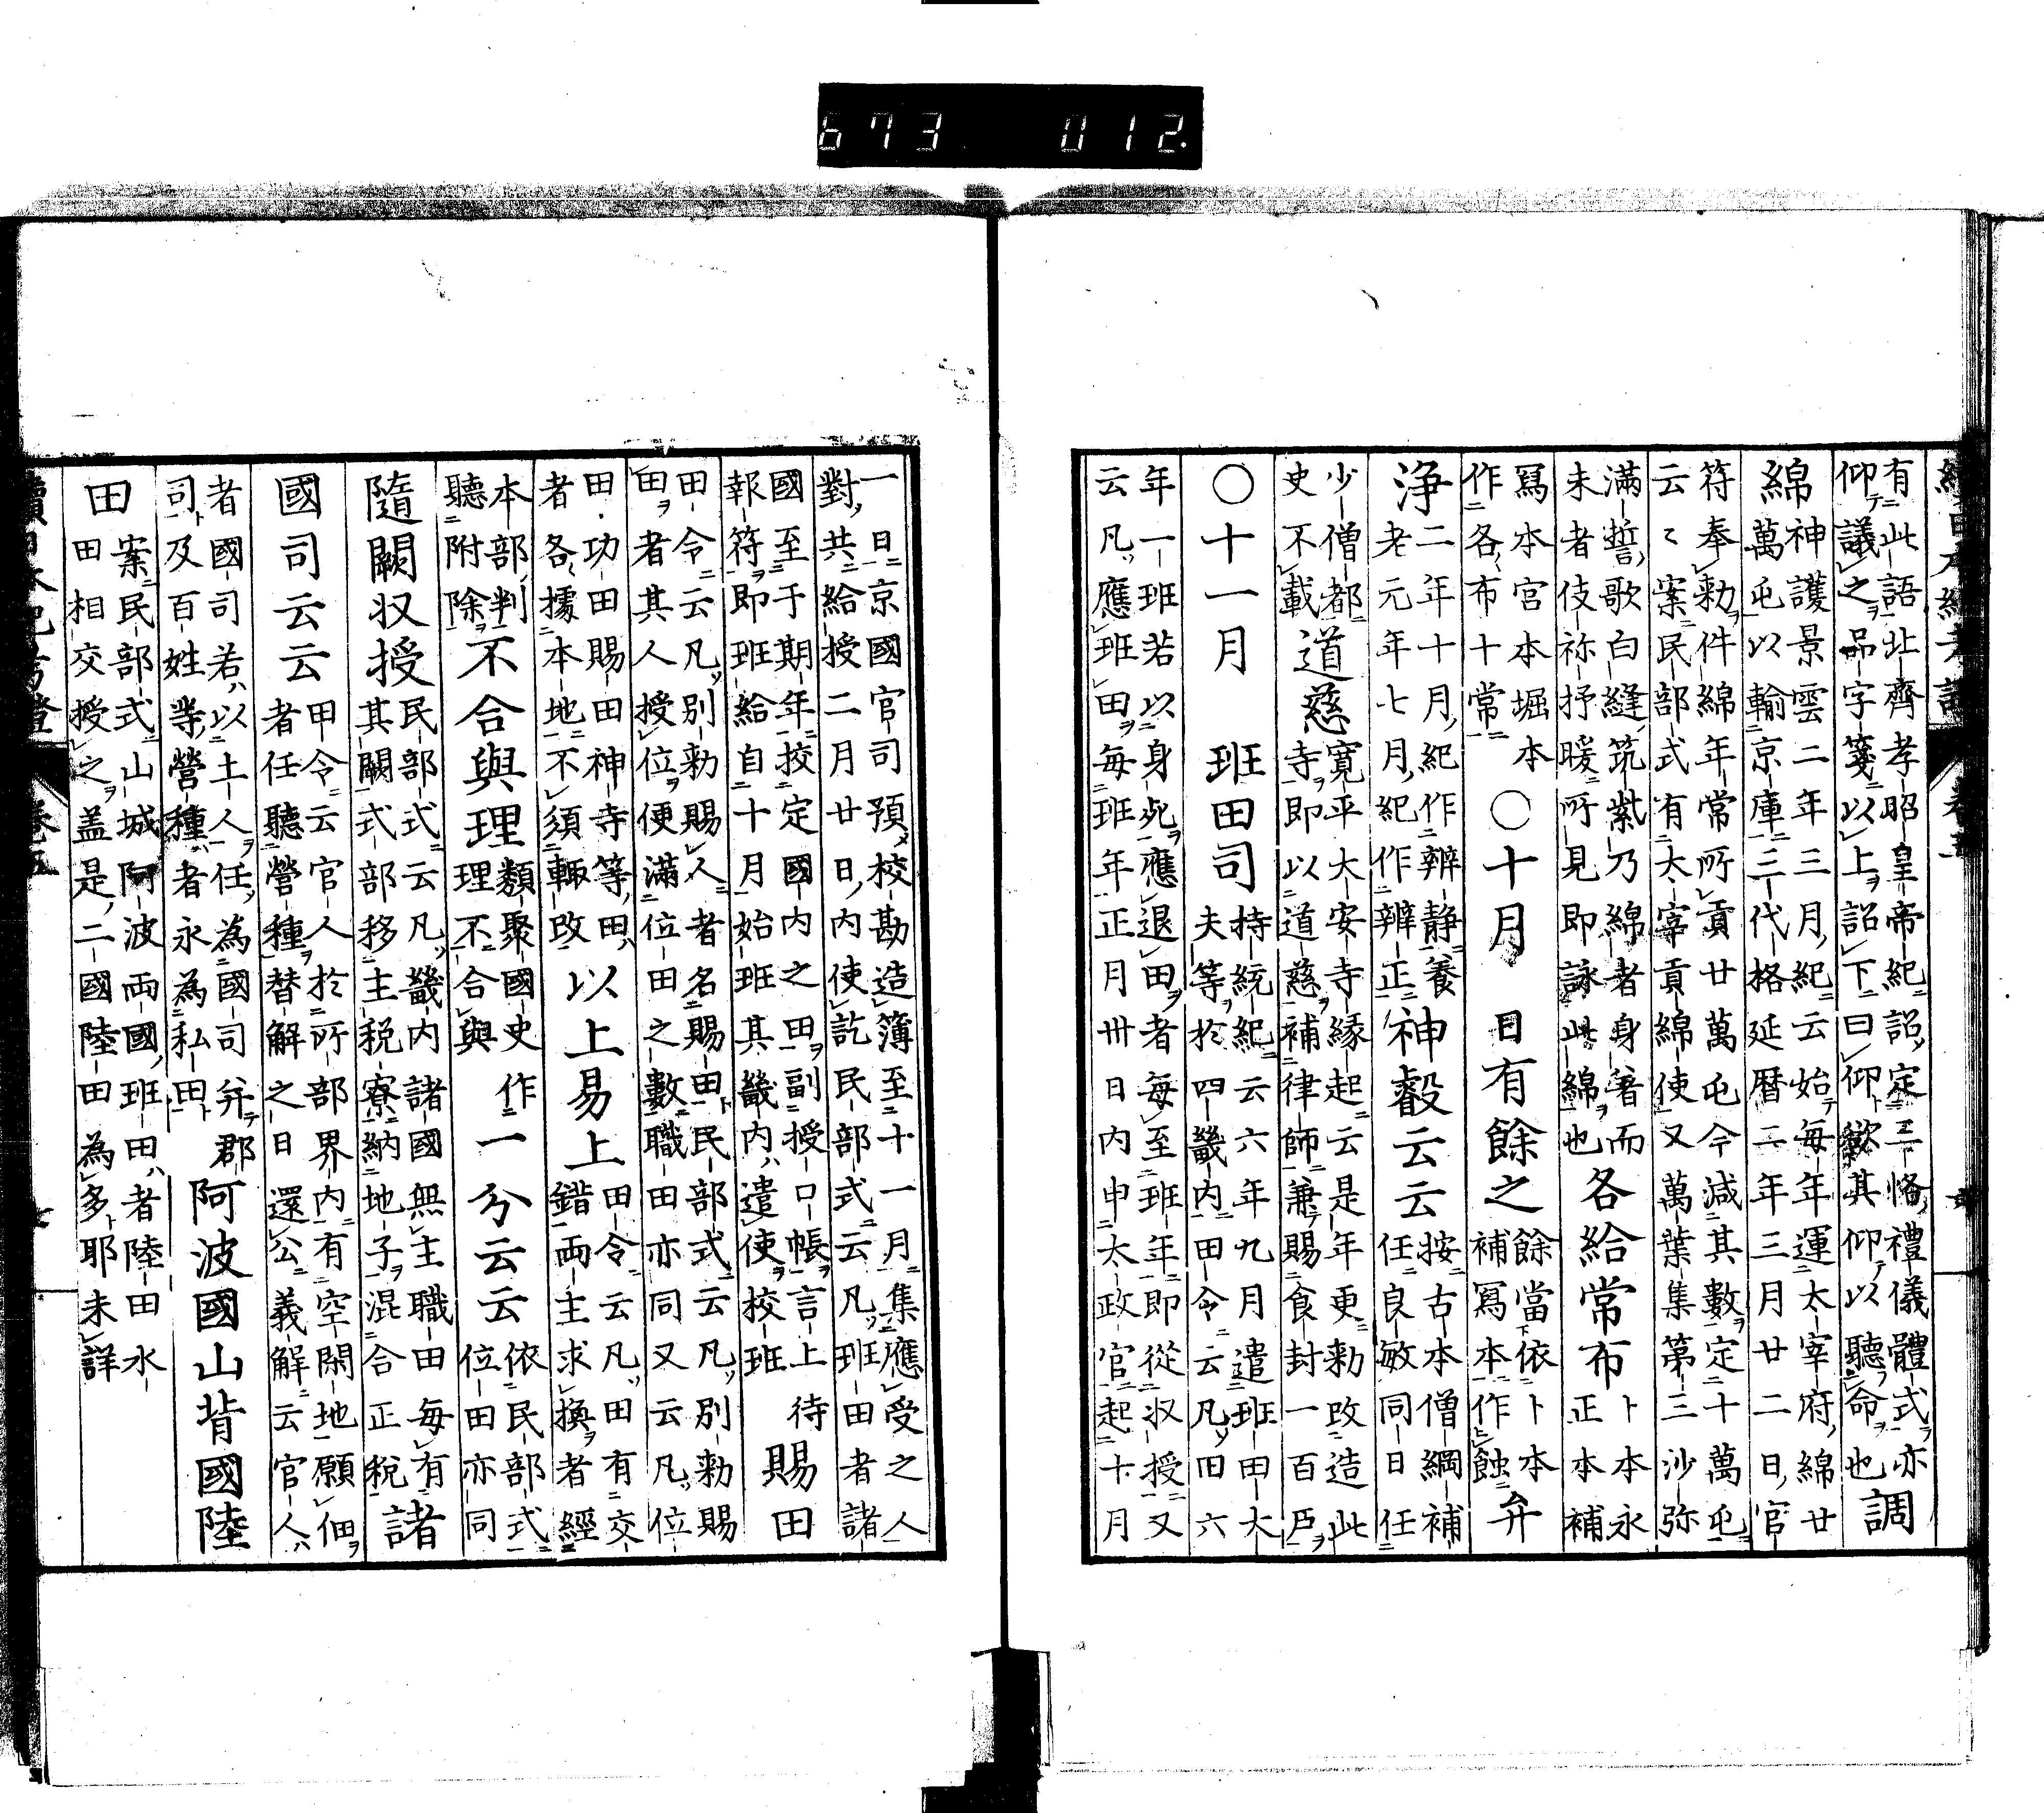 673 012.
有此語北齊孝昭皇帝紀詔定三恪禮儀體式亦
仰議之品字箋以上詔下曰仰欽其仰以聽命也
調
綿
神護景雲二年三月紀云始每年運太宰府綿廿
萬屯以輸京庫三代格延暦二年三月廿二日官
符奉勅件綿年常所貢廿萬屯今減其數定十萬屯
云々案民部式有太宰貢綿使又萬葉集第三沙弥
滿誓歌白縫筑紫乃綿者身著而
未者伎祢抒暖所見即詠此綿也
各給常布
卜本永
正本補
寫本宮本堀本
作各布十常
○十月
日有餘之
餘當依卜本
補寫本作蝕
弁
浄
二年十月紀作辨静養
老元年七月紀作辨正
神叡云云
按古本僧綱補
任良敏同日任
少僧都此
史不載
道慈
寛平大安寺縁起云是年更勅改造此
寺即以道慈補律師兼賜食封一百戸
○十一月
班田司
持統紀云六年九月遣班田大
夫等於四畿内田令云凡田六
年一班若以身死應退田者每至班年即從收授又
云凡應班田每班年正月卅日内申太政官起十月
一日京國官司預校勘造簿至十一月集應受之人
對共給授二月廿日内使訖民部式云凡班田者諸
國至于期年校定國内之田副授口帳言上待
報符即班給自十月始班其畿内遣使校班
賜田
田令云凡別勅賜人者名賜田民部式云凡別勅賜
田者其人授位便滿位田之數職田亦同又云凡位
田功田賜田神寺等田
者各據本地不須輙改
以上易上
田令云凡田有交
錯兩主求換者經
本部判
聽附除
不合與理
類聚國史作
理不合與
一分云云
依民部式
位田亦同
隨闕收授
民部式云凡畿内諸國無主職田每有
其闕式部移主税寮納地子混合正税
諸
國司云云
田令云官人於所部界内有空閑地願佃
者任聽營種替解之日還公義解云官人
者國司若以土人任為國司弁郡
司及百姓等營種者永為私田
阿波國山背國陸
田
案民部式山城阿波兩國班田者陸田水
田相交授之盖是二國陸田為多耶未詳